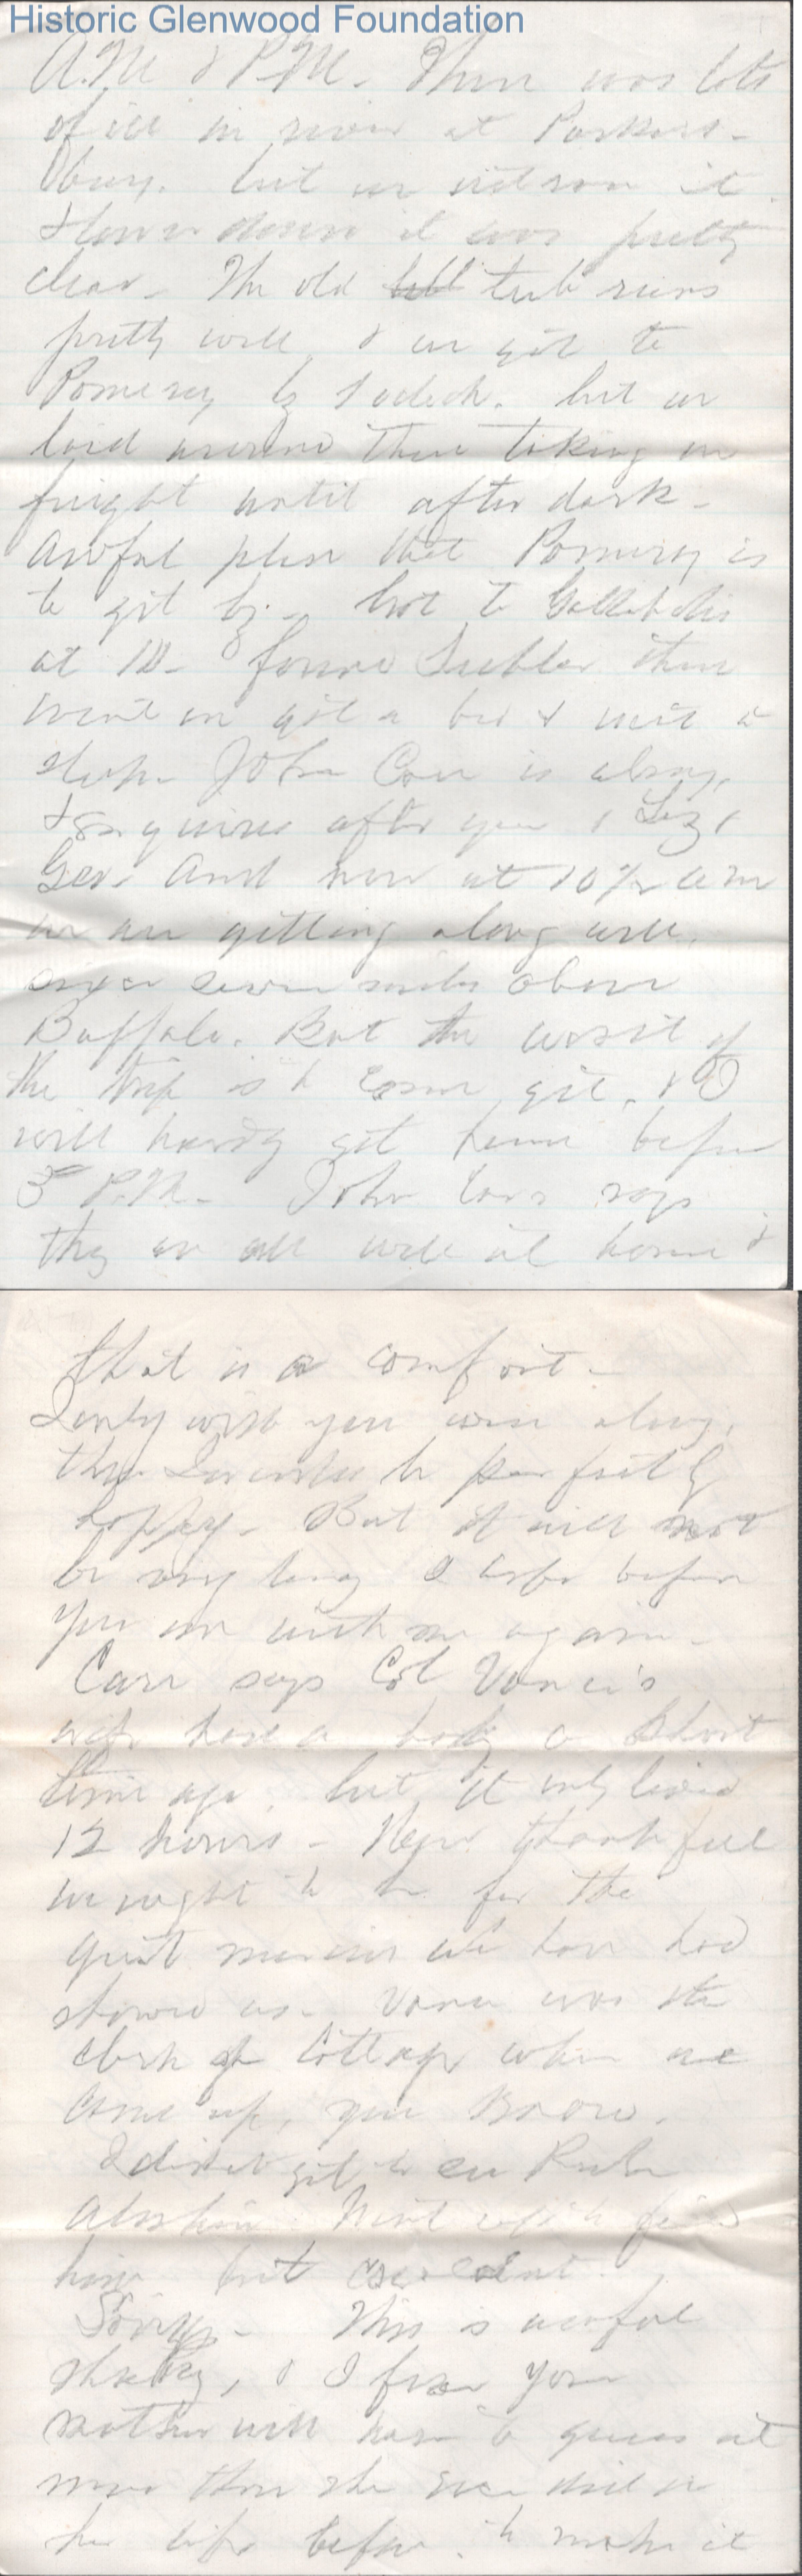 Historic Glenwood Foundation
A.M & P.M. There was lots
of ice in river at Parkers-
burg. but we it
down it was pretty
clear. The old tub runs
pretty well, & we got to
Pomeroy by oclock. but we
laid around there taking on
freight until after dark.
Awful place that Pomeroy is
to get by. Got to Gallipolis
at 10. found there
went on got a bed & went to
sleep. John Carr is along,
& enquires after you & Liz &
Geo. And now at 10 1/2 AM
we are getting along well,
seven miles above
Buffalo. But the worst of
the trip is to come yet, & I
will hardly get home before
5 P.M. John Carr says
they are all well at home &
that is a comfort.
I only wish you were along,
then I would be perfectly
happy. But it will not
be very long I hope before
you are with me again.
Carr says Col Vance's
wife had a baby a short
time ago, but it only lived
12 hours. How thankful
we ought to be for the
great mercies we have had
shown us. Vance was the
clerk of Cottage when we
come up, you know.
I didnt get to see
him but couldnt.
Sorry. This is awful
shaky, & I fear your
mother will have to guess at
more than she ever did in
her life before, to make it